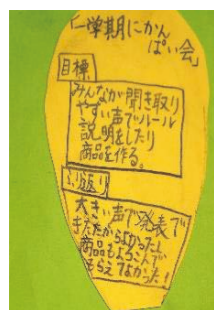 「一学期にかん
ぱい会」
目標
みんなが聞き取り
やすい声でルール
説明をしたり
商品を作る。
ふり返り
大きい声で発表で
きたからよかったし、
商品もよろこんで
もらえてよかった！